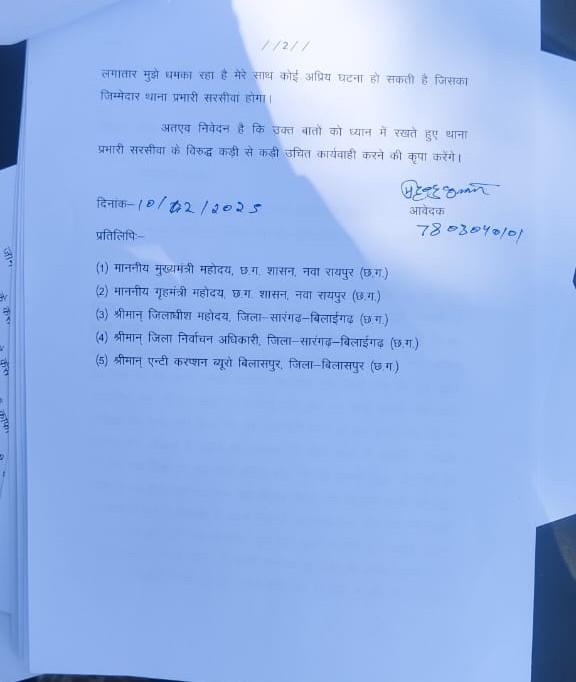 //2//
लगातार मुझे धमका रहा है मेरे साथ कोई अप्रिय घटना हो सकती है जिसका
जिम्मेदार थाना प्रभारी सरसीवां होगा।
अतएव निवेदन है कि उक्त बातो को ध्यान में रखते हुए थाना
प्रभारी सरसीवा के विरुद्ध कड़ी से कड़ी उचित कार्यवाही करने की कृपा करेंगे।
दिनांक–10/02/2025
आवेदक
7803040101
प्रतिलिपिः–
(1) माननीय मुख्यमंत्री महोदय, छ.ग. शासन, नवा रायपुर (छ.ग.)
(2) माननीय गृहमंत्री महोदय, छ.ग. शासन, नवा रायपुर (छ.ग.)
(3) श्रीमान् जिलाधीश महोदय, जिला–सारंगढ़–बिलाईगढ़ (छ.ग.)
(4) श्रीमान् जिला निर्वाचन अधिकारी, जिला–सारंगढ़–बिलाईगढ़ (छ.ग.)
(5) श्रीमान् एन्टी करप्शन ब्यूरो बिलासपुर, जिला–बिलासपुर (छ.ग.)